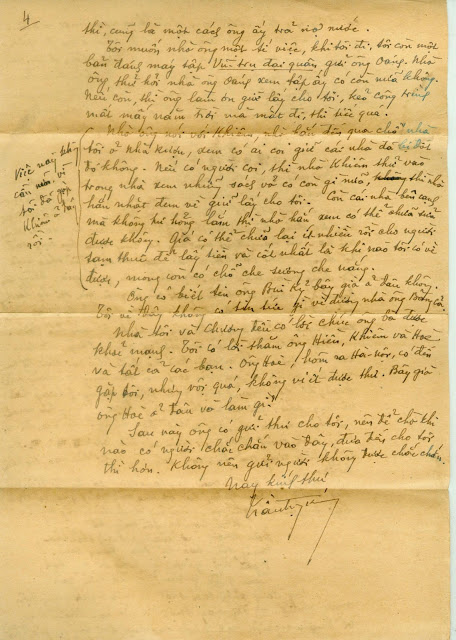 4
thì, cũng là một cách ông ấy trả nợ nước.
Tôi muốn nhờ ông một tí việc, khi tôi đi, tôi còn một
bản đang máy tập Vũ-trụ đại quan gửi ông Oang. Nhờ
ông thử hỏi nhà ông Oang xem tập ấy có còn nữa không.
Nếu còn, thì ông làm ơn giữ lấy cho tôi, kẻo công trình
mất mấy năm trời mà mất đi, thì tiếc quá.
Nhờ ông nói với Khiêm đến qua chỗ nhà
tôi ở Nhà Rượu, xem có ai coi giữ các nhà đó
đó không. Nếu có người coi, thì nhờ Khiêm thử vào
trong nhà xem những sách vở có còn gì nữa, thì nhờ
hắn nhặt đem về giữ lấy cho tôi. Còn cái nhà bên cạnh
mà không hư hỏng lắm thì nhờ hắn xem có thể chữa sửa
được không. Giá có thể chữa lại ít nhiều rồi cho người
làm thuê để lấy tiền và cốt nhất là khi nào tôi có về
được, mong còn có chỗ che sương che nắng.
Việc này
cần nên vì
tôi đã gặp
Khiêm ở đây
rồi.
Ông có biết tin ông Bùi Kỷ bây giờ ở đâu không.
Tôi về đây không có tin tức gì về đường nhà ông
Nhà tôi và Chương đều có lời chúc ông bà được
khoẻ mạnh. Tôi có lời thăm ông Hiên, Khiêm và Hoè
và tất cả các bạn. Ông Hoè hôm ra Ha-nội, có đến
gặp tôi, nhưng vội quá, không viết được thư. Bây giờ
ông Hoè ở đâu và làm gì?
Sau này ông có gửi thư cho tôi, nên để chờ khi
nào có người chắc chắn vào đây, đưa đến cho tôi
thì hơn. Không nên gửi người không được chắc chắn.
Nay kính thư